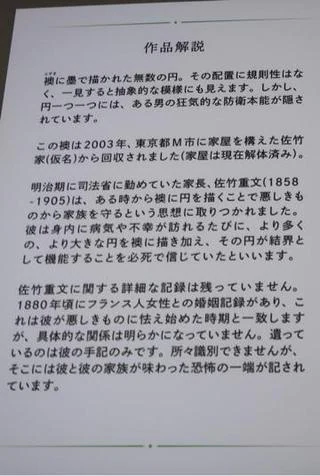 作品解説
ふすま
襖に墨で描かれた無数の円。その配置に規則性はな
く、一見すると抽象的な模様にも見えます。しかし、
円一つ一つには、ある男の狂気的な防衛本能が隠さ
れています。
この襖は2003年、東京都M市に家屋を構えた佐竹
家(仮名)から回収されました(家屋は現在解体済み)。
明治期に司法省に勤めていた家長、佐竹重文(1858
-1905)は、ある時から襖に円を描くことで悪しきも
のから家族を守るという思想に取りつかれました。
彼は身内に病気や不幸が訪れるたびに、より多く
の、より大きな円を襖に描き加え、その円が結界と
して機能することを必死で信じていたといいます。
佐竹重文に関する詳細な記録は残っていません。
1880年頃にフランス人女性との婚姻記録があり、こ
れは彼が悪しきものに怯え始めた時期と一致します
が、具体的な関係は明らかになっていません。遺って
いるのは彼の手記のみです。所々識別できませんが、
そこには彼と彼の家族が味わった恐怖の一端が記され
ています。